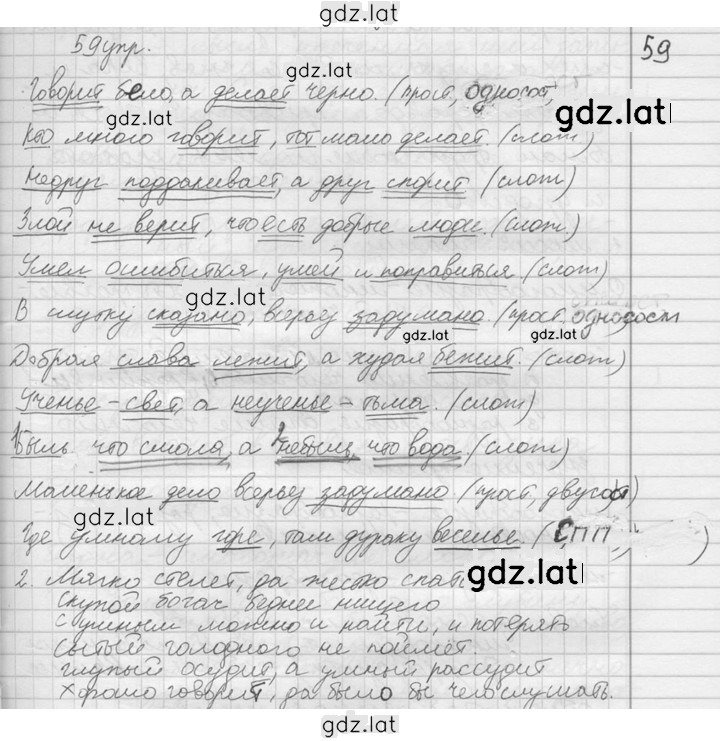 gdz.lat
59упр. 59
gdz.lat
Говорит бело, а делает черно. (прост, односост,
gdz.lat
Кто много говорит, тот мало делает. (слож)
Недруг поддакивает, а друг спорит (слож)
Злой не верит, что есть добрые люди. (слож)
Умел ошибиться, умей и поправиться (слож)
gdz.lat
В шутку сказано, всерьез задумано (прост, односост
gdz.lat gdz.lat
Добрая слава лежит, а худая бежит. (слож)
Ученье - свет, а неученье - тьма. (слож)
Быль что смола, а небыль что вода (слож)
Маленькое дело всерьез задумано (прост, двусост)
gdz.lat
Где умному горе, там дураку веселье. (СПП
2. Мягко стелет, да жестко спать
gdz.lat
Скупой богач беднее нищего
с умным можно и найти, и потерять
сытый голодного не поймёт
глупый осудит, а умный рассудит
хорошо говорит, да было бы чего слушать.
gdz.lat